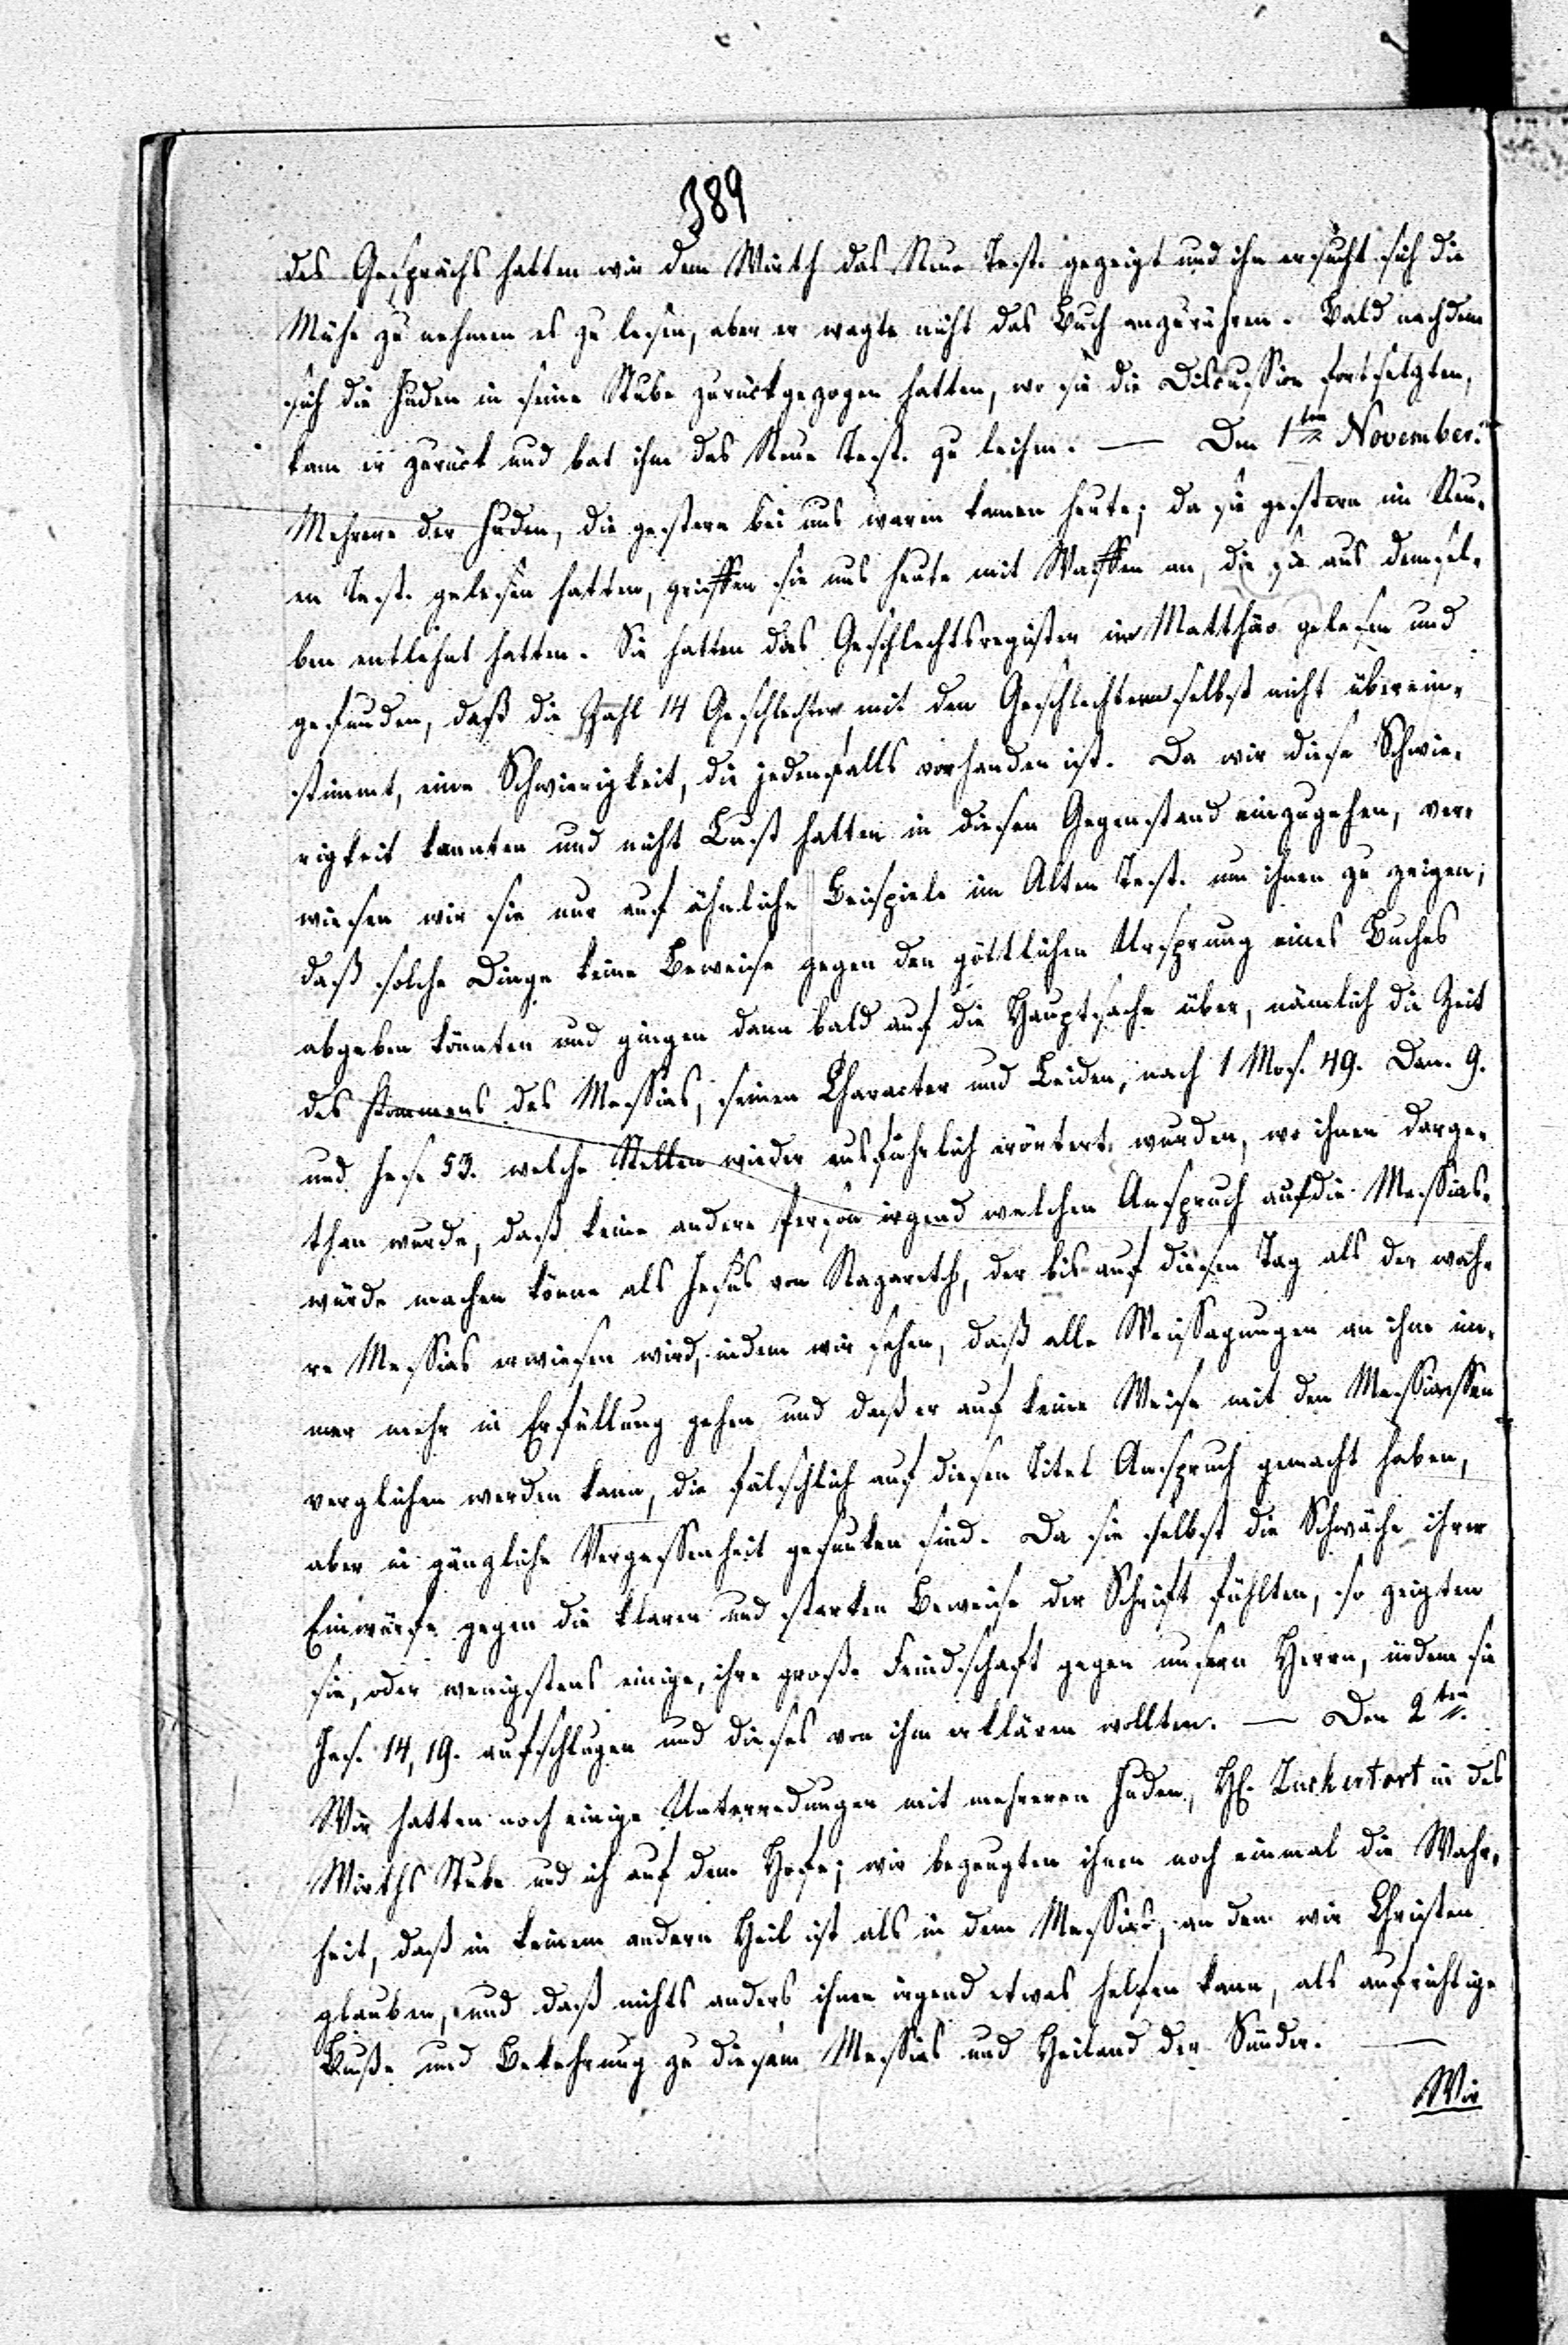 389
des Gesprächs hatten wir dem Wirth das Neue Test. gezeigt und ihn ersucht sich die
Mühe zu nehmen es zu lesen, aber er wagte nicht das Buch anzurühren. Bald nachdem
sich die Juden in seine Stube zurückgezogen hatten, wo sie die Discussion fortsetzten,
kam er zurück und bat ihm das Neue Test. zu leihen. — Den 1ten November.
Mehrere der Juden, die gestern bei uns waren kamen heute; da sie gestern im Neu-
en Test. gelesen hatten, griffen sie uns heute mit Waffen an, die sie aus demsel-
ben entlehnt hatten. Sie hatten das Geschlechtsregister im Matthäo gelesen und
gefunden, daß die Zahl 14 Geschlechter mit den Geschlechtern selbst nicht überein-
stimmt, eine Schwierigkeit, die jedenfalls vorhanden ist. Da wir diese Schwie-
rigkeit kannten und nicht Lust hatten in diesen Gegenstand einzugehen, ver-
wiesen wir sie nur auf ähnliche Beispiele im Alten Test. um ihnen zu zeigen,
daß solche Dinge keine Beweise gegen den göttlichen Ursprung eines Buches
abgeben könnten und gingen dann bald auf die Hauptsache über, nämlich die Zeit
des Kommens des Messias, seinen Character und Leiden, nach 1 Mos. 49. Dan. 9.
und Jes. 53. welche Stellen wieder ausführlich erörtert wurden, wo ihnen darge-
than wurde, daß keine andere Person irgend welchen Anspruch auf die Messias-
würde machen könne als Jesus von Nazareth, der bis auf diesen Tag als der wah-
re Messias erwiesen wird, indem wir sehen, daß alle Weissagungen an ihm im-
mer mehr in Erfüllung gehen und daß er auf keine Weise mit den Messiassen
verglichen werden kann, die fälschlich auf diesen Titel Anspruch gemacht haben,
aber in gänzliche Vergessenheit gesunken sind. Da sie selbst die Schwäche ihrer
Einwürfe gegen die klaren und starken Beweise der Schrift fühlten, so zeigten
sie, oder wenigstens einige, ihre große Feindschaft gegen unsern Herrn, indem sie
Jes. 14, 19. aufschlugen und dieses von ihm erklären wollten. — Den 2ten
Wir hatten noch einige Unterredungen mit mehreren Juden, H. Zuckertort in des
Wirths Stube und ich auf dem Hofe; wir bezeugten ihnen noch einmal die Wahr-
heit, daß in keinem andern Heil ist als in dem Messias, an den wir Christen
glauben, und daß nichts anders ihnen irgend etwas helfen kann, als aufrichtige
Buße und Bekehrung zu diesem Messias und Heiland der Sünder. —
Wir